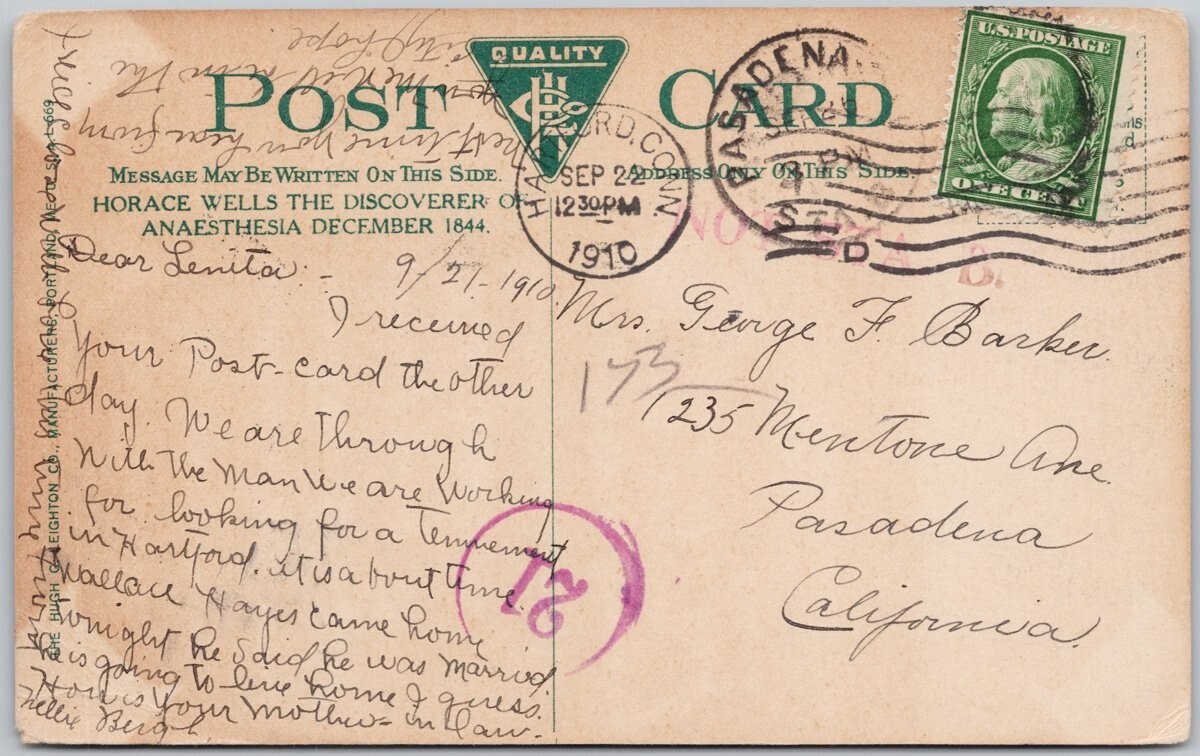 POST CARD
QUALITY
MESSAGE MAY BE WRITTEN ON THIS SIDE.
ADDRESS ONLY ON THIS SIDE.
HORACE WELLS THE DISCOVERER OF
ANAESTHESIA DECEMBER 1844.
U.S. POSTAGE
ONE CENT
PASADENA
STA.
D
HARTFORD, CONN
SEP 22
12 30 PM
1910
NOT STA B.
Dear Lenita -
9/21-1910.
I received
Your Post-card the other
day. We are through
With the Man we are Working
for looking for a Tennement
in Hartford. it is about time.
Wallace Hayes came home
Tonight he said he was Married
he is going to live home I guess.
How is Your Mother-in law.
Nellie Bergh.
next time you hear from
in the
city hope
Mrs. George F. Barker.
153
1235 Mentone Ave.
Pasadena
California.
21
THE HUGH C. LEIGHTON CO., MANUFACTURERS, PORTLAND, ME.